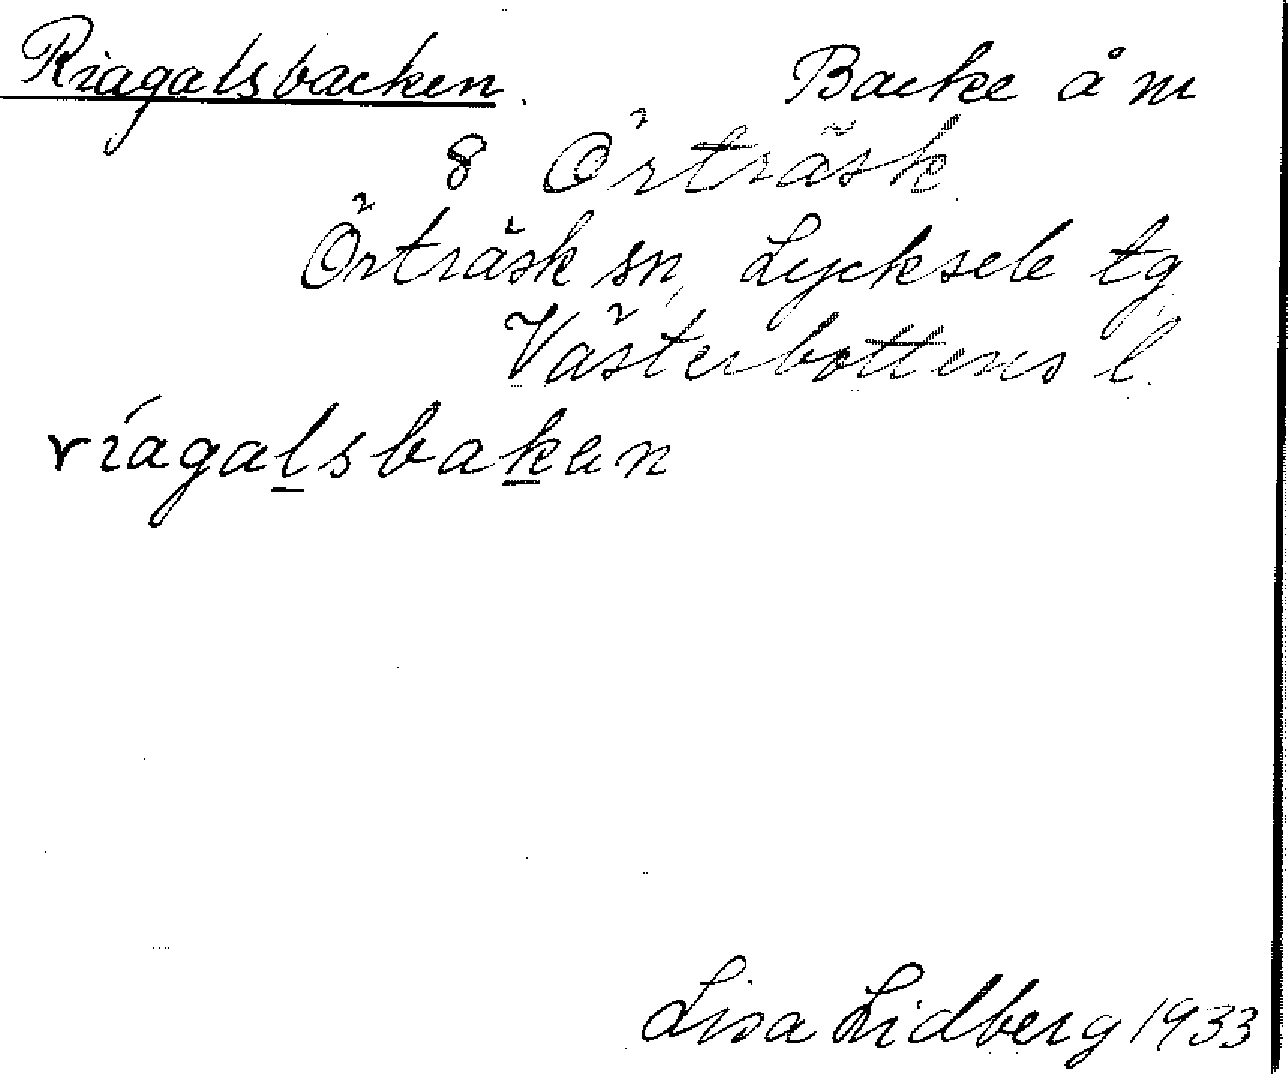 Riagalsbacken. Backe å m
8 Örträsk
Örträsk sn, Lycksele tg
Västerbottens l.
ríagalsbakan
Lisa Lidberg 1933